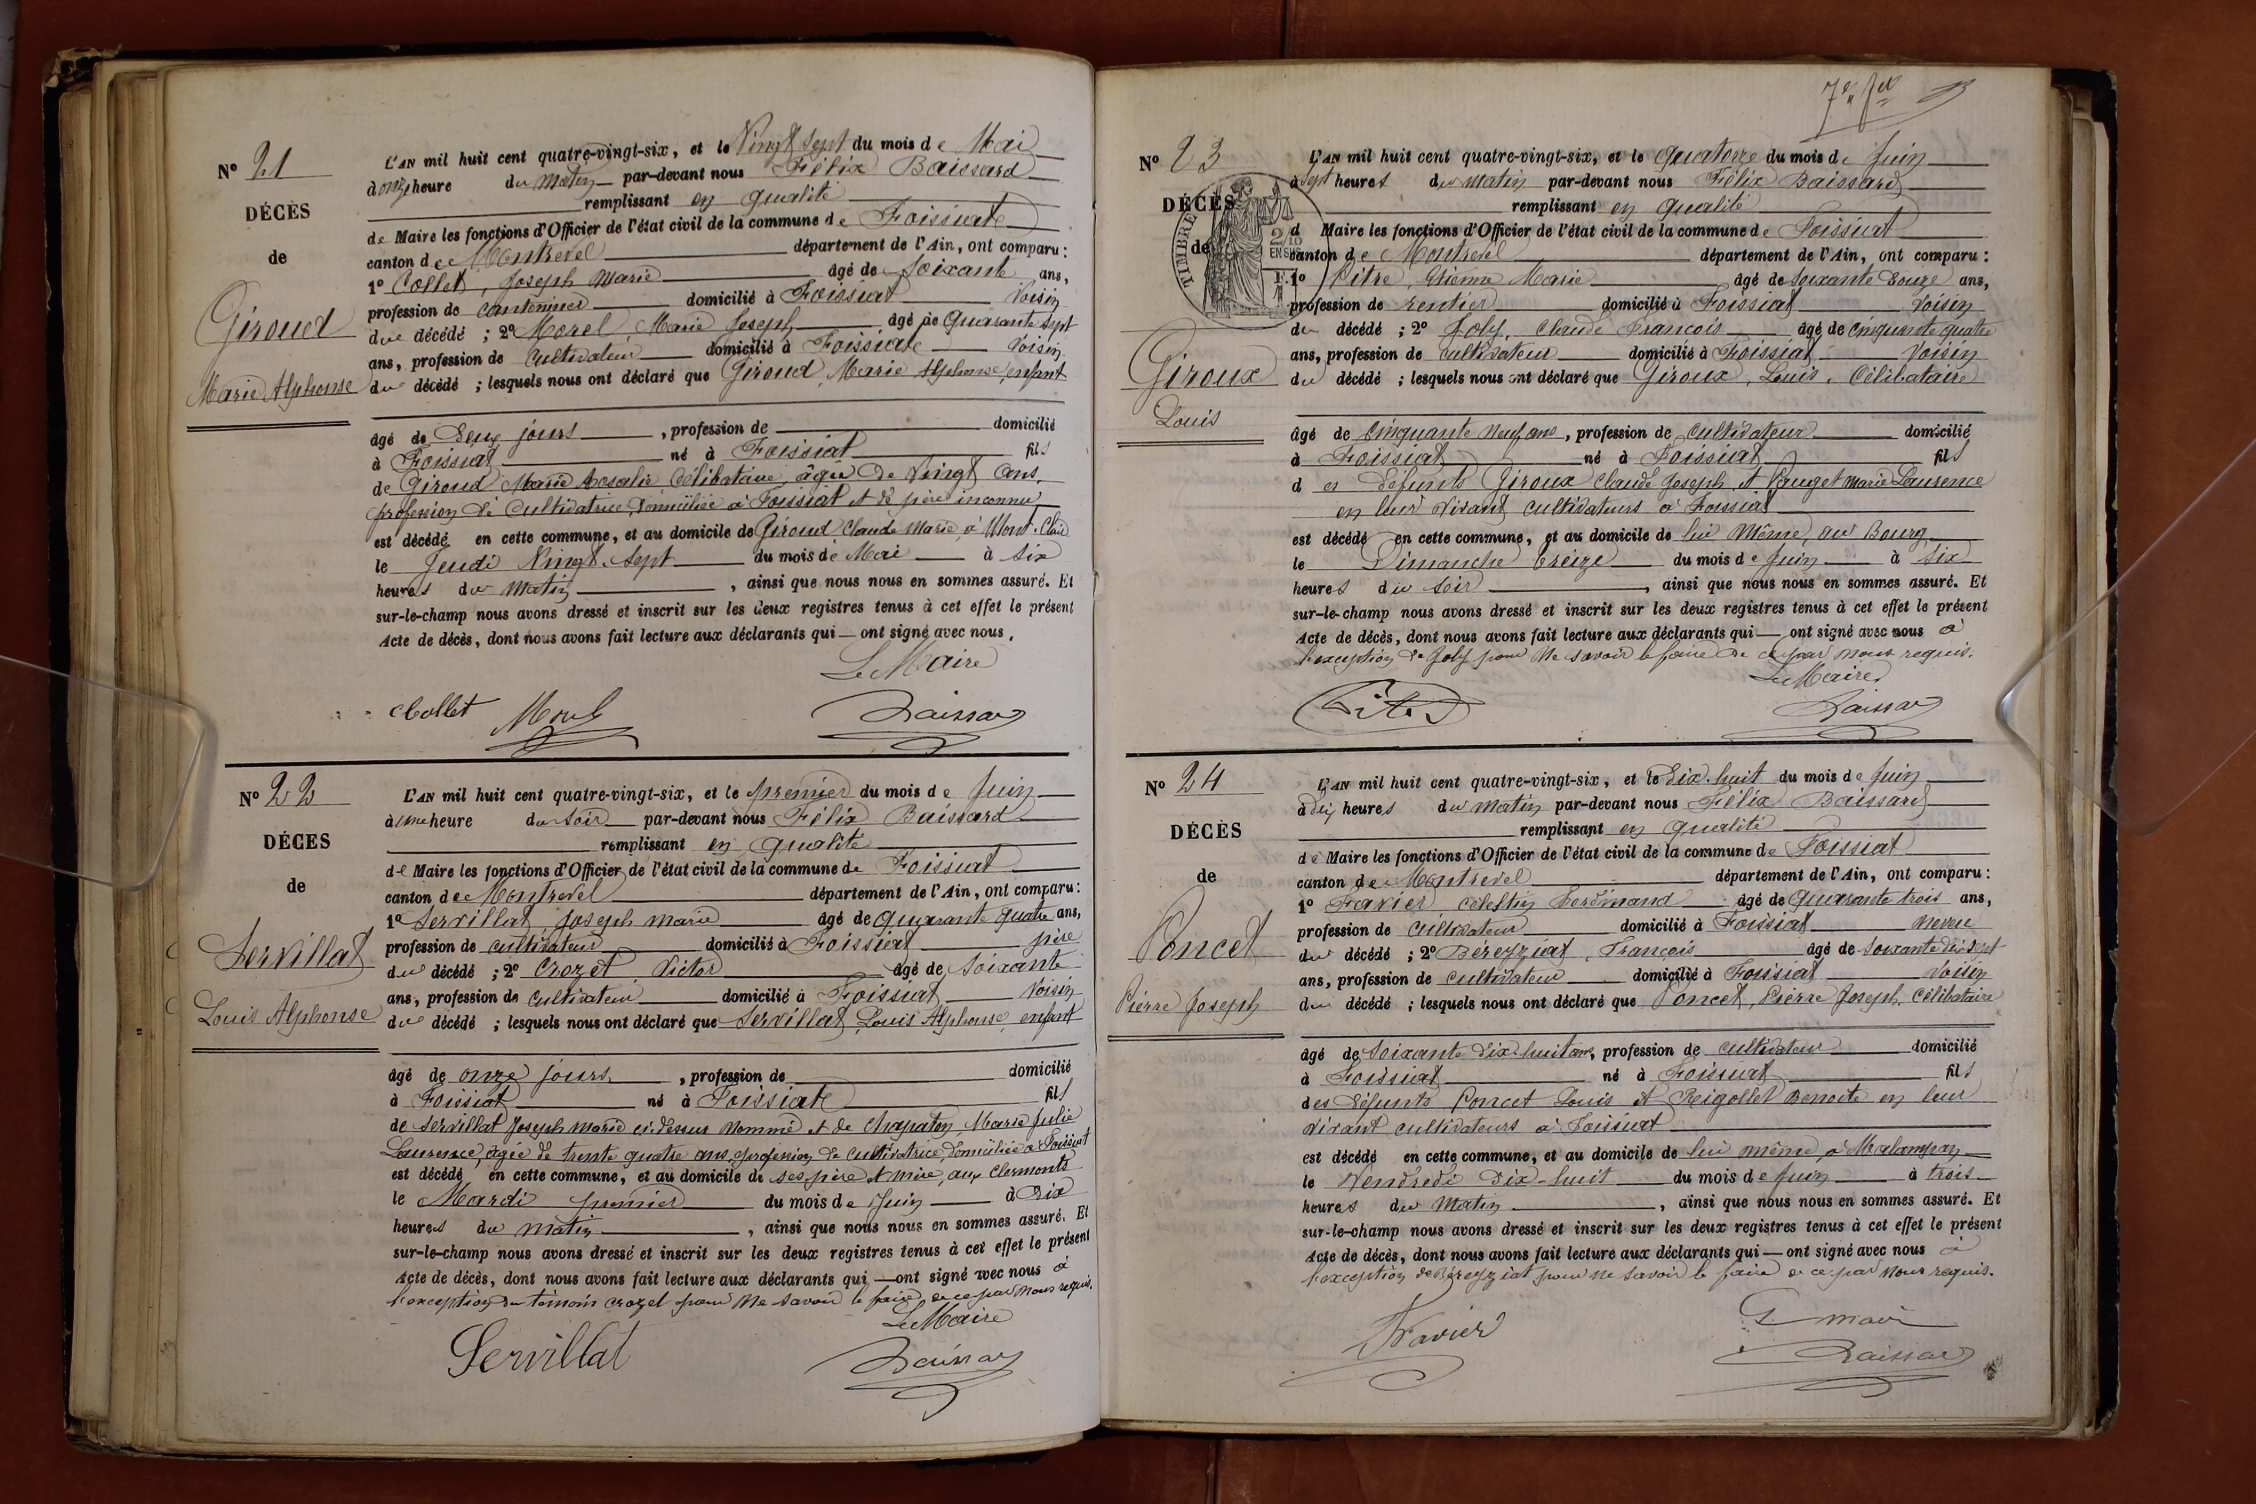 N° 21
DÉCÈS
de
Giroud
Marie Alphonse
L'AN mil huit cent quatre-vingt-six, et le Vingt Sept du mois de Mai
à onze heure du matin par-devant nous Félix Baissard
remplissant en qualité
de Maire les fonctions d'Officier de l'état civil de la commune de Foissiat
canton de Montrevel département de l'Ain, ont comparu :
1° Collet, Joseph Marie âgé de Soixante ans,
profession de cantonnier domicilié à Foissiat Voisin
du décédé ; 2° Morel Marie Joseph âgé de Quarante Sept
ans, profession de cultivateur domicilié à Foissiat Voisin
du décédé ; lesquels nous ont déclaré que Giroud, Marie Alphonse, enfant
âgé de Deux jours, profession de domicilié
à Foissiat né à Foissiat fils
de Giroud Marie Rosalie Célibataire, âgée de Vingt ans,
profession de Cultivatrice, Domiciliée à Foissiat et de père inconnu
est décédé en cette commune, et au domicile de Giroud Claude Marie, à Mont-Clair
le Jeudi Vingt-Sept du mois de Mai à Six
heures du Matin, ainsi que nous nous en sommes assuré. Et
sur-le-champ nous avons dressé et inscrit sur les deux registres tenus à cet effet le présent
Acte de décès, dont nous avons fait lecture aux déclarants qui — ont signé avec nous.
Le Maire
Collet Morel Baissard
N° 22
DÉCES
de
Servillat
Louis Alphonse
L'AN mil huit cent quatre-vingt-six, et le premier du mois de Juin
à une heure du Soir par-devant nous Félix Baissard
remplissant en qualité
de Maire les fonctions d'Officier de l'état civil de la commune de Foissiat
canton de Montrevel département de l'Ain, ont comparu :
1° Servillat Joseph marie âgé de quarante quatre ans,
profession de cultivateur domicilié à Foissiat père
du décédé ; 2° Crozet Victor âgé de Soixante
ans, profession de Cultivateur domicilié à Foissiat Voisin
du décédé ; lesquels nous ont déclaré que Servillat Louis Alphonse, enfant
âgé de onze jours, profession de domicilié
à Foissiat né à Foissiat fils
de Servillat Joseph marie ci-dessus nommé et de Chapaton, Marie Julie
Laurence, âgée de trente quatre ans, profession de Cultivatrice, Domiciliée à Foissiat
est décédé en cette commune, et au domicile de ses père et mère, aux Clermonts
le Mardi premier du mois de Juin à Dix
heures du matin, ainsi que nous nous en sommes assuré. Et
sur-le-champ nous avons dressé et inscrit sur les deux registres tenus à cet effet le présent
Acte de décès, dont nous avons fait lecture aux déclarants qui — ont signé avec nous à
l'exception du témoin Crozet pour ne savoir le faire de ce par nous requis.
Le Maire
Servillat Baissard
7e
N° 23
DÉCÈS
de
TIMBRE
2/10
EN SUS
Giroux
Louis
L'AN mil huit cent quatre-vingt-six, et le Quatorze du mois de Juin
à Sept heures du matin par-devant nous Félix Baissard
remplissant en qualité
d Maire les fonctions d'Officier de l'état civil de la commune de Foissiat
canton de Montrevel département de l'Ain, ont comparu :
1° Pitre, Etienne Marie âgé de Soixante Douze ans,
profession de rentier domicilié à Foissiat Voisin
du décédé ; 2° Joly, Claude François âgé de cinquante quatre
ans, profession de cultivateur domicilié à Foissiat Voisin
du décédé ; lesquels nous ont déclaré que Giroux, Louis, Célibataire
âgé de Cinquante Neuf ans, profession de Cultivateur domicilié
à Foissiat né à Foissiat fils
d es défunts Giroux Claude Joseph et Pauget Marie Laurence
en leur vivant cultivateurs à Foissiat
est décédé en cette commune, et au domicile de lui même, au Bourg
le Dimanche treize du mois de Juin à Six
heures du Soir, ainsi que nous nous en sommes assuré. Et
sur-le-champ nous avons dressé et inscrit sur les deux registres tenus à cet effet le présent
Acte de décès, dont nous avons fait lecture aux déclarants qui — ont signé avec nous à
l'exception de Joly pour ne savoir le faire de ce par nous requis.
Le Maire
Pitre Baissard
N° 24
DÉCÈS
de
Poncet
Pierre Joseph
L'AN mil huit cent quatre-vingt-six, et le Dix-huit du mois de Juin
à dix heures du matin par-devant nous Félix Baissard
remplissant en qualité
de Maire les fonctions d'Officier de l'état civil de la commune de Foissiat
canton de Montrevel département de l'Ain, ont comparu :
1° Favier Célestin Ferdinand âgé de Quarante trois ans,
profession de cultivateur domicilié à Foissiat neveu
du décédé ; 2° Béreyziat, François âgé de Soixante dix Sept
ans, profession de cultivateur domicilié à Foissiat Voisin
du décédé ; lesquels nous ont déclaré que Poncet, Pierre Joseph, Célibataire
âgé de Soixante Dix-huit ans, profession de cultivateur domicilié
à Foissiat né à Foissiat fils
des défunts Poncet Louis et Rigollet Benoite en leur
vivant cultivateurs à Foissiat
est décédé en cette commune, et au domicile de lui même, à Malampan
le Vendredi Dix-huit du mois de Juin à trois
heures du Matin, ainsi que nous nous en sommes assuré. Et
sur-le-champ nous avons dressé et inscrit sur les deux registres tenus à cet effet le présent
Acte de décès, dont nous avons fait lecture aux déclarants qui — ont signé avec nous à
l'exception de Béreyziat pour ne savoir le faire de ce par nous requis.
Favier
Baissard